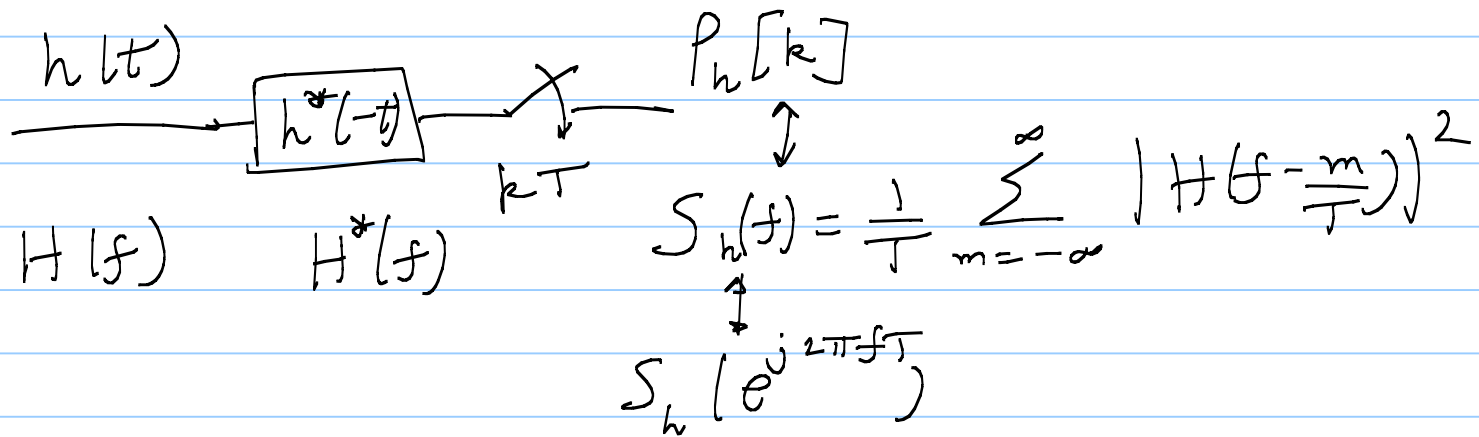 h(t)
h*(-t)
kT
P_h[k]
H(f)
H*(f)
S_h(f) = 1/T ∑_{m=-∞}^{∞} |H(f - m/T)|^2
S_h(e^{j2πfT})